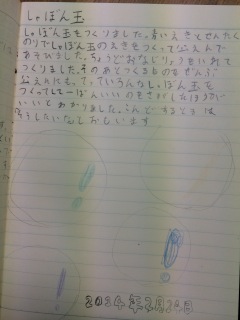 しゃぼん玉
しゃぼん玉をつくりました。青いえきとせんたく
のりでしゃぼん玉のえきをつくって公えんで
あそびました。ちょうど
つくりました。そのあとつくるものをぜんぶ
公えんにもっていろんなしゃぼん玉を
つくって一ばんいいのをさがしたほうが
いいとわかりました。こんどするときは
そうしたいなとおもいます
2024年2月24日